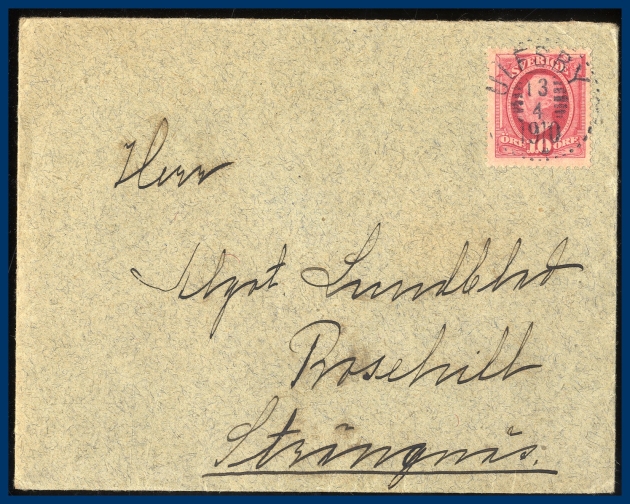 SVERIGE
13
4
1910
ÖRE 10 ÖRE
Herr
Algot. Lundblad
Rosehill
Strängnäs.